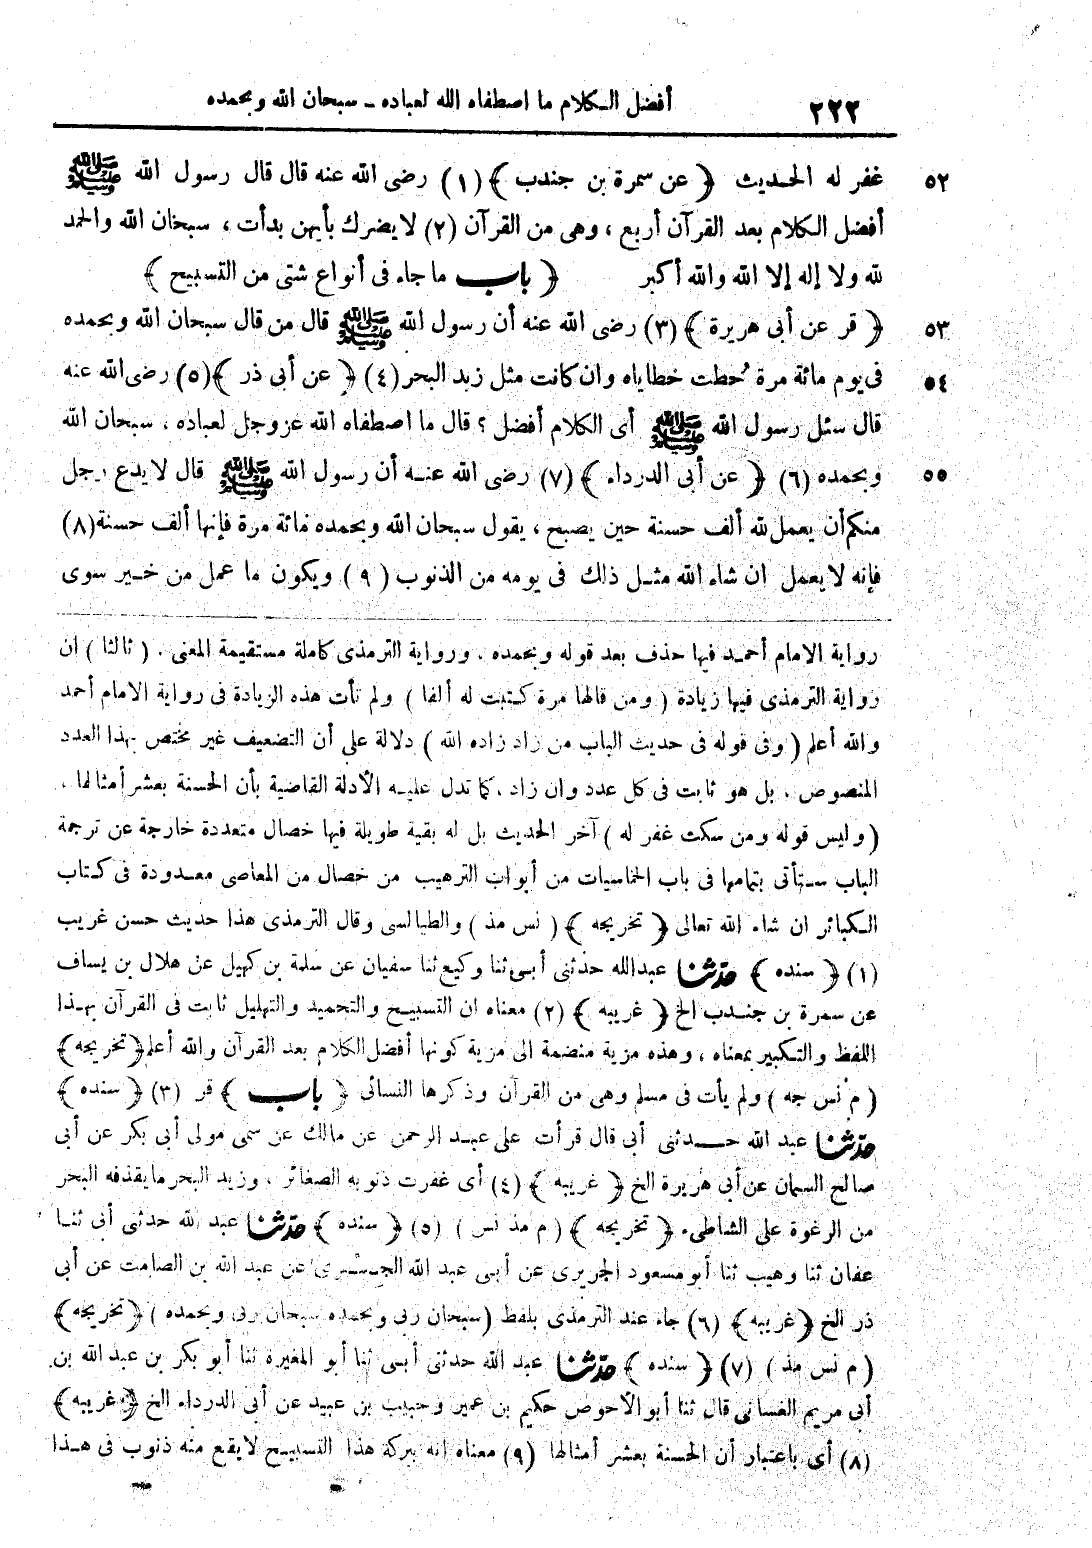 ٢٢٢ أفضل الكلام ما اصطفاه الله لعباده ـ سبحان الله وبحمده
٥٢ غفر له الحديث ﴿ عن سمرة بن جندب ﴾ (١) رضى الله عنه قال قال رسول الله ﷺ
أفضل الكلام بعد القرآن أربع ، وهى من القرآن (٢) لا يضرك بأيهن بدأت ، سبحان الله والحمد
لله ولا إله إلا الله والله أكبر ﴿ باب ما جاء فى أنواع شتى من التسبيح ﴾
٥٣ ﴿ قر عن أبى هريرة ﴾ (٣) رضى الله عنه أن رسول الله ﷺ قال من قال سبحان الله وبحمده
٥٤ فى يوم مائة مرة حُطت خطاياه وان كانت مثل زبد البحر (٤) ﴿ عن أبى ذر ﴾ (٥) رضى الله عنه
قال سئل رسول الله ﷺ أى الكلام أفضل ؟ قال ما اصطفاه الله عزوجل لعباده ، سبحان الله
٥٥ وبحمده (٦) ﴿ عن أبى الدرداء ﴾ (٧) رضى الله عنه أن رسول الله ﷺ قال لا يدع رجل
منكم أن يعمل لله ألف حسنة حين يصبح ، يقول سبحان الله وبحمده مائة مرة فإنها ألف حسنة (٨)
فإنه لا يعمل ان شاء الله مثل ذلك فى يومه من الذنوب (٩) ويكون ما عمل من خير سوى
رواية الامام أحمد فيها حذف بعد قوله وبحمده ، ورواية الترمذى كاملة مستقيمة المعنى . (ثالثا) ان
رواية الترمذى فيها زيادة (ومن قالها مرة كتبت له ألفا) ولم تأت هذه الزيادة فى رواية الامام أحمد
والله أعلم (وفى قوله فى حديث الباب من زاد زاده الله) دلالة على أن التضعيف غير مختص بهذا العدد
المنصوص ، بل هو ثابت فى كل عدد وان زاد ، كما تدل عليه الأدلة القاضية بأن الحسنة بعشر أمثالها .
(وليس قوله ومن سكت غفر له) آخر الحديث بل له بقية طويلة فيها خصال متعددة خارجة عن ترجمة
الباب ستأتى بتمامها فى باب الخماسيات من أبواب الترهيب من خصال من المعاصى معدودة فى كتاب
الكبائر ان شاء الله تعالى ﴿ تخريجه ﴾ (نس مذ) والطيالسى وقال الترمذى هذا حديث حسن غريب
(١) ﴿ سنده ﴾ حدثنا عبدالله حدثنى أبى ثنا وكيع ثنا سفيان عن سلمة بن كهيل عن هلال بن يساف
عن سمرة بن جندب الخ ﴿ غريبه ﴾ (٢) معناه ان التسبيح والتحميد والتهليل ثابت فى القرآن بهذا
اللفظ والتكبير بمعناه ، وهذه مزية منضمة الى مزية كونها أفضل الكلام بعد القرآن والله أعلم ﴿تخريجه﴾
(م نس جه) ولم يأت فى مسلم وهى من القرآن وذكرها النسائى ﴿ باب ﴾ قر (٣) ﴿ سنده ﴾
حدثنا عبد الله حدثنى أبى قال قرأت على عبد الرحمن عن مالك عن سمى مولى أبى بكر عن أبى
صالح السمان عن أبى هريرة الخ ﴿ غريبه ﴾ (٤) أى غفرت ذنوبه الصغائر ، وزبد البحر ما يقذفه البحر
من الرغوة على الشاطىء ﴿ تخريجه ﴾ (م مذ نس) (٥) ﴿ سنده ﴾ حدثنا عبد الله حدثنى أبى ثنا
عفان ثنا وهيب ثنا أبو مسعود الجريرى عن أبى عبد الله الجسرى عن عبد الله بن الصامت عن أبى
ذر الخ ﴿غريبه﴾ (٦) جاء عند الترمذى بلفظ (سبحان ربى وبحمده سبحان ربى وبحمده) ﴿تخريجه﴾
(م نس مذ) (٧) ﴿ سنده ﴾ حدثنا عبد الله حدثنى أبى ثنا أبو المغيرة ثنا أبو بكر بن عبد الله بن
أبى مريم الغسانى قال ثنا أبو الأحوص حكيم بن عمير وحبيب بن عبيد عن أبى الدرداء الخ ﴿غريبه﴾
(٨) أى باعتبار أن الحسنة بعشر أمثالها (٩) معناه انه ببركة هذا التسبيح لا يقع منه ذنوب فى هذا